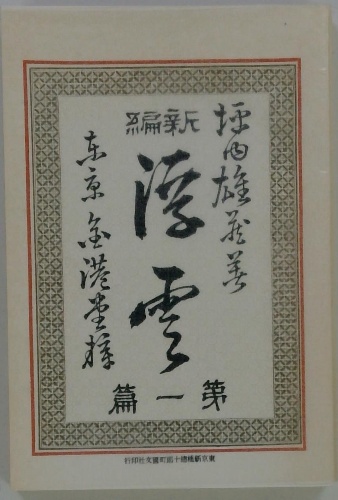 坪内雄蔵著
新編
浮雲
第一篇
東京金港堂梓
東京新橋惣十郎町國文社印行